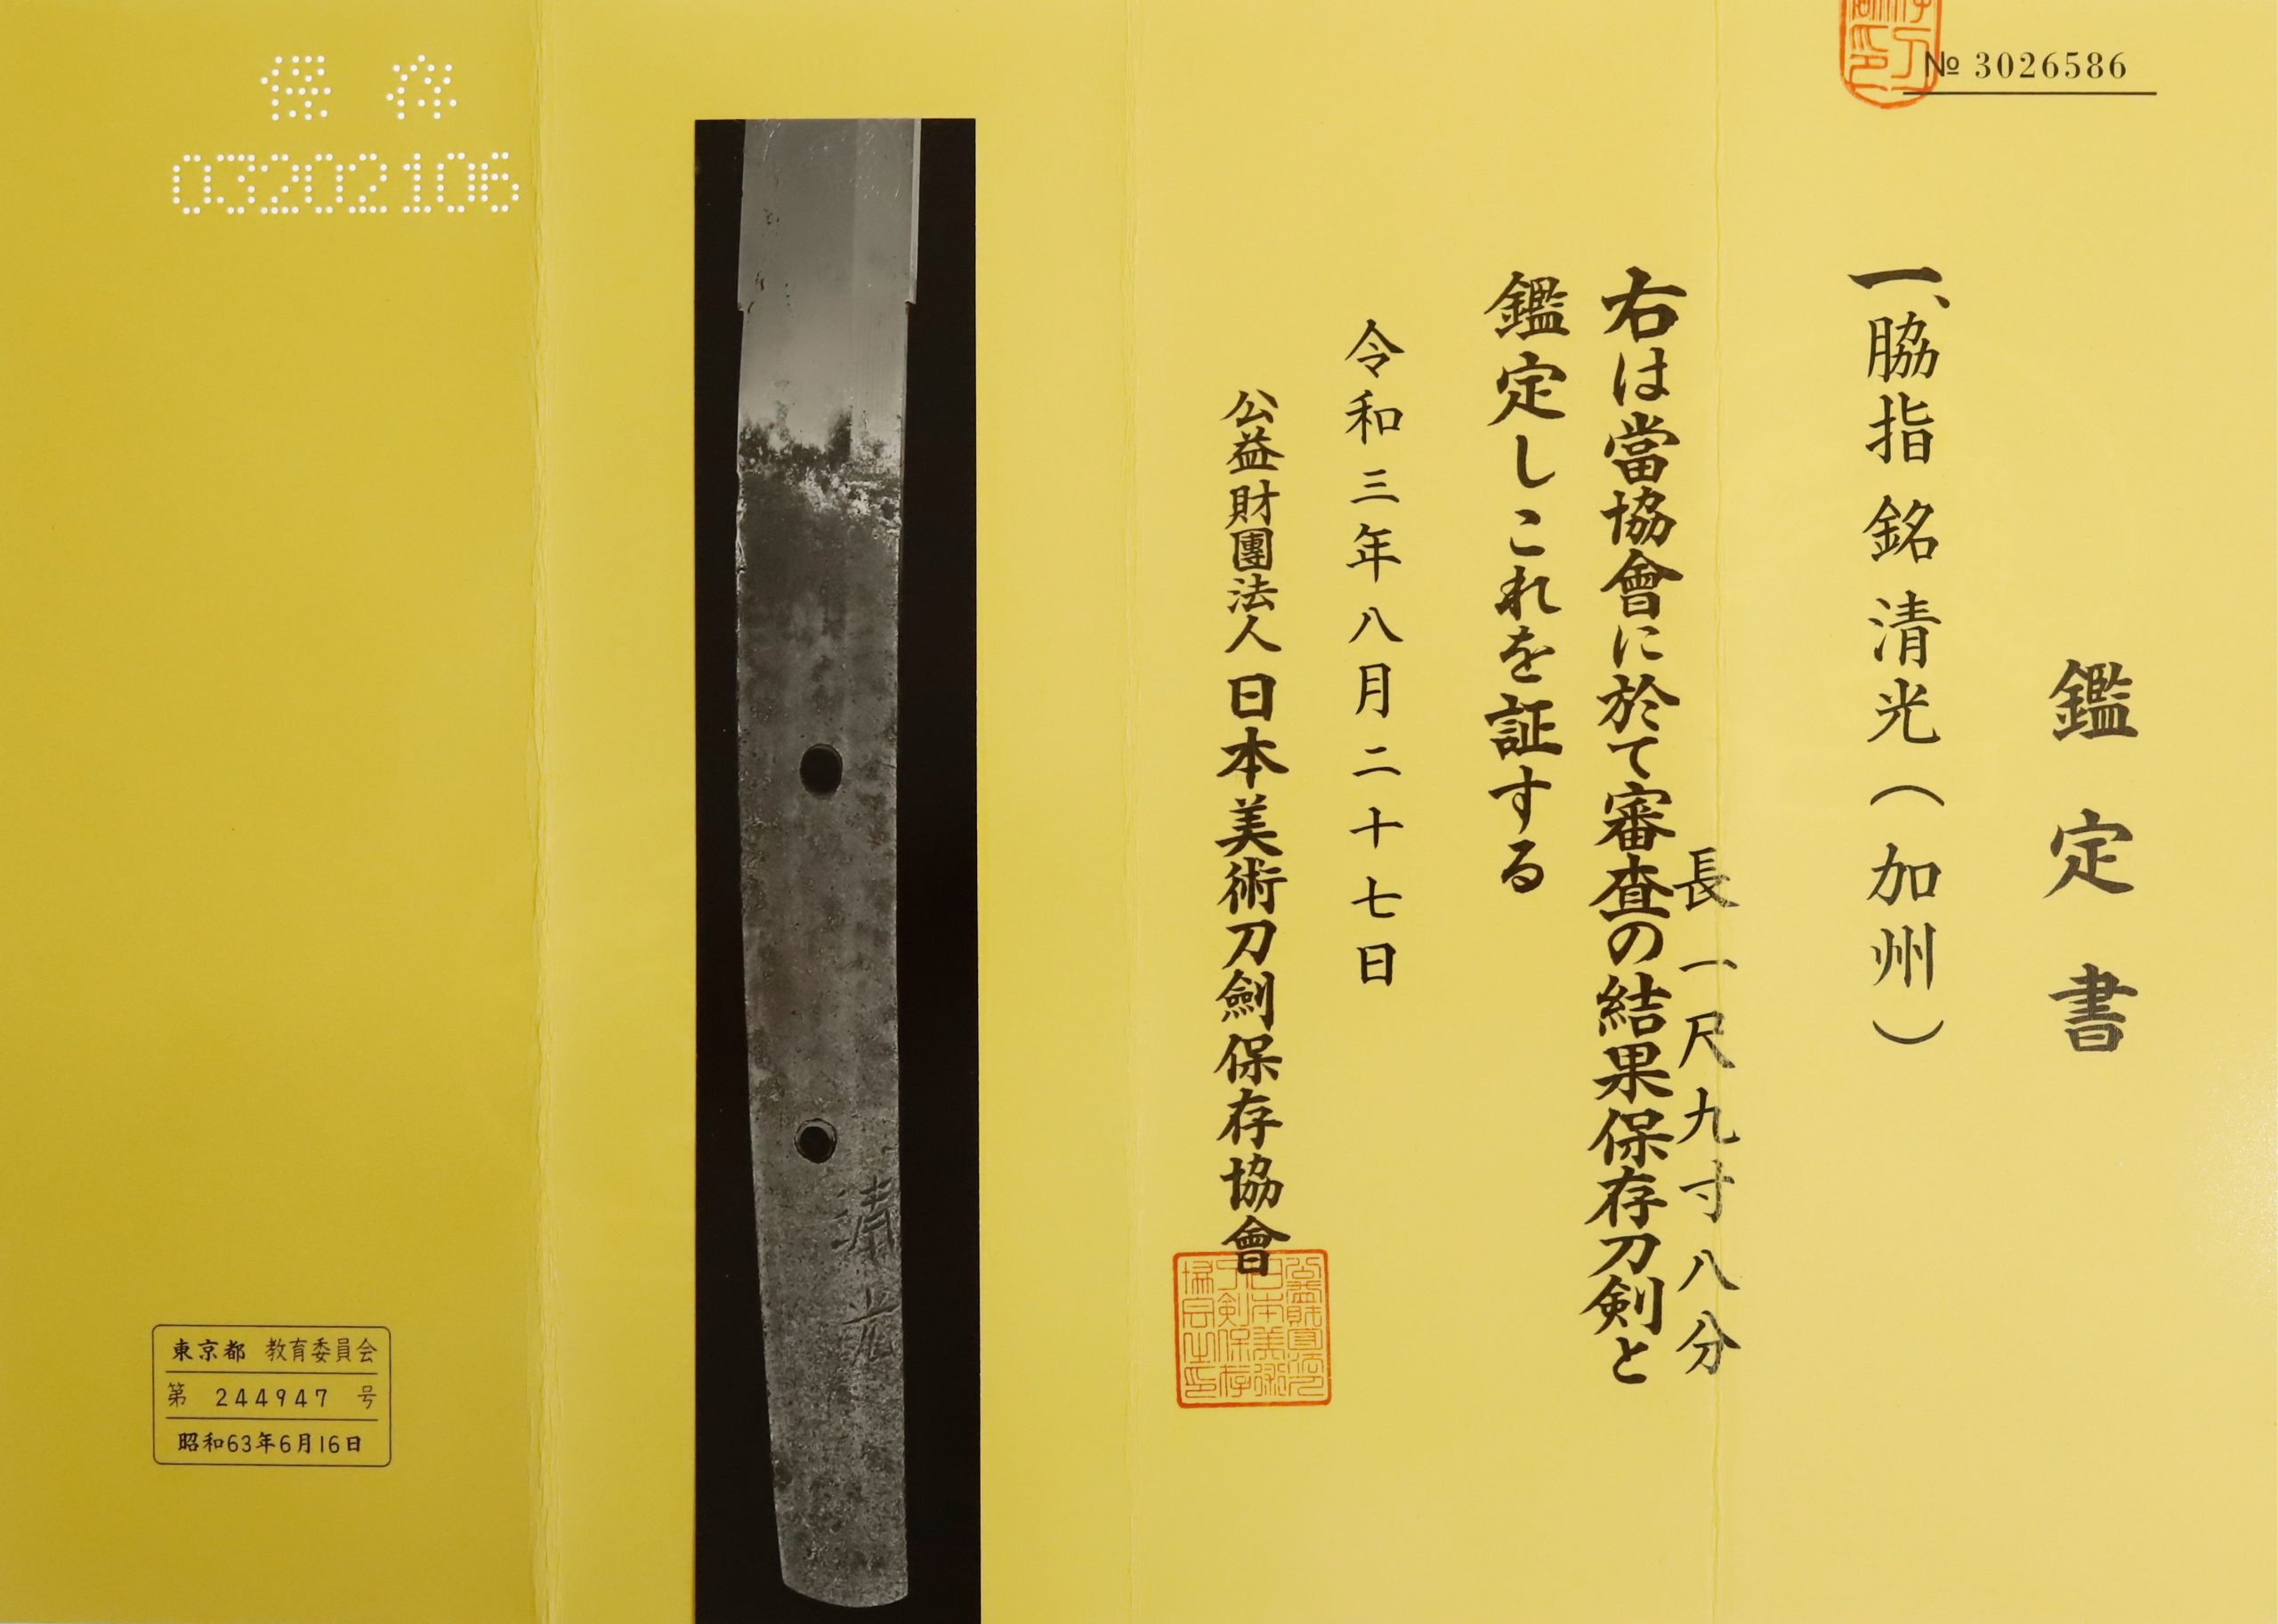 № 3026586
鑑定書
一、脇指 銘 清光(加州)
長一尺九寸八分
右は當協會に於て審査の結果保存刀剣と
鑑定しこれを証する
令和三年八月二十七日
公益財團法人 日本美術刀劍保存協會
清光
保存
03202106
東京都 教育委員会
第 244947 号
昭和63年6月16日